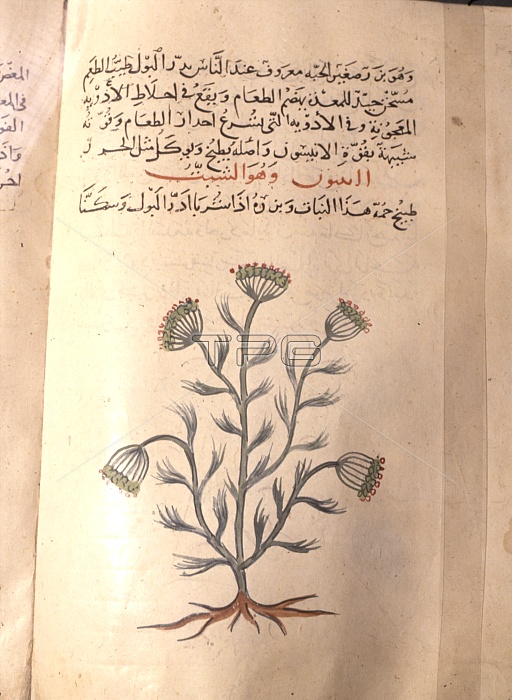 وهو بزر صغير الحبه معروف عند الناس يدر البول طيب الطعم
مسخن جيد للمعدة يهضم الطعام ويقع في اخلاط الأدويه
المعجونه وفي الأدويه التي تسرع احدار الطعام وقوته
شبيهة بقوة الانيسون واصله يطبخ ويوكل مثل الجزر
وهو الشبث
طبيخ جمة هذا النبات وبزره اذا شربا ادر البول وسكنا
TPG